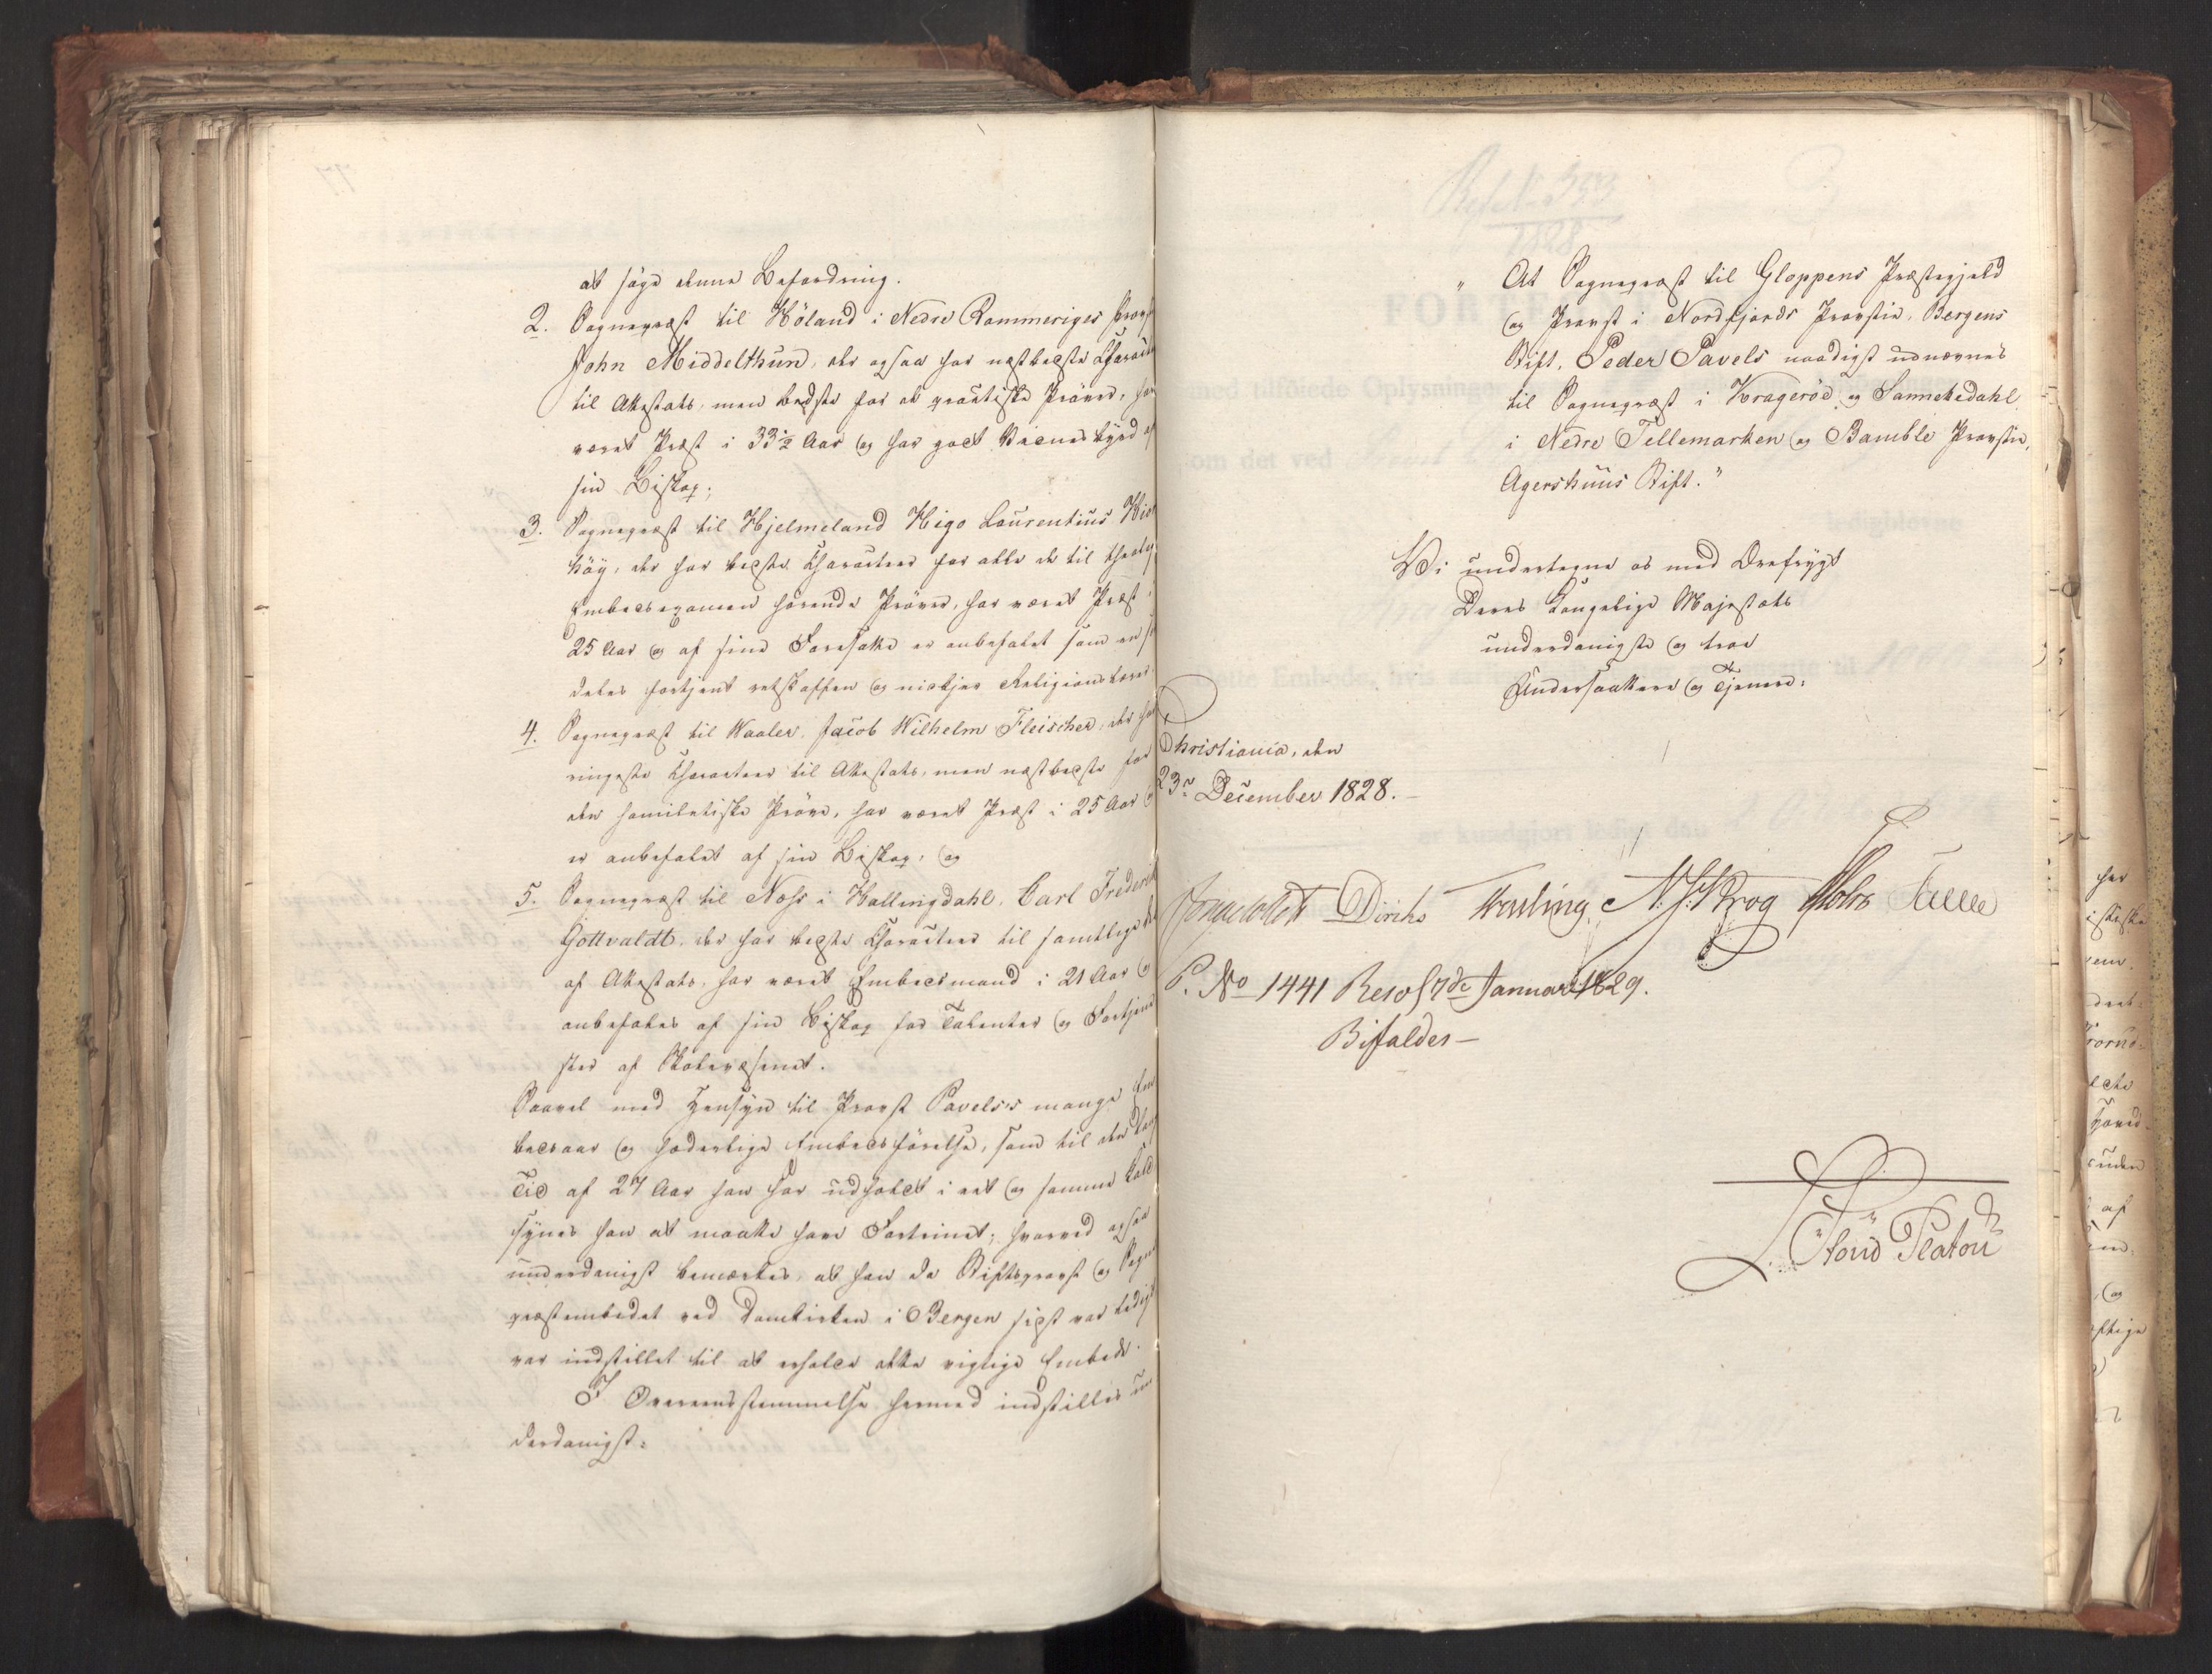 at søge denne Befordring.
2. Sognepræst til Höland i Nedre Rommeriges Provst
John Middelthun, der ogsaa har næstbedste Charact
til Attestats, men bedste for de practiske Prøver, har
været Præst i 33½ Aar og har godt Vidnesbyrd af
sin Biskop;
3. Sognepræst til Hjelmeland Higo Laurentius
höy, der har bedste Characteer for alle de til theolog
Embedsexamen hørende Prøver, har været Præst i
25 Aar og af sine Foresatte er anbefalet som en
deles fortjent retskaffen og nidkjær Religionslærer
4. Sognepræst til Waaler, Jacob Wilhelm Fleischer, der har
ringeste Characteer til Attestats, men næstbedste for
den homiletiske Prøve, har været Præst i 25 Aar og
er anbefalet af sin Biskop, og
5. Sognepræst til Næss i Hallingdahl, Carl Frederik
Gottvaldt, der har bedste Characteer til samtlige
af Attestats, har været Embedsmand i 21 Aar og
anbefales af sin Biskop for Talenter og Fortjene
ster af Skolevæsenet.
Saavel med Hensyn til Provst Pavels's mange Em
bedsaar og hæderlige Embedsførelse, som til den lange
Tid af 27 Aar han har udholdt i eet og samme Kald
synes han at maatte have Fortrinet; hvorved ogsaa
underdanigst bemærkes, at han da Stiftsprovst og Sogne
præstembedet ved Domkirken i Bergen sidst var ledigt
var indstillet til at erholde dette vigtige Embede.
I Overeensstemmelse hermed indstilles un
derdanigst:
„ At Sognepræst til Gloppens Præstegjeld
og Provst i Nordfjords Provstie, Bergens
Stift, Peder Pavels naadigst udnævnes
til Sognepræst i Kragerøe og Sannekedahl
i Nedre Tellemarken og Bamble Provstie,
Agershuus Stift."
Vi undertegne os med Ærefrygt
Deres Kongelige Majestæts
underdanigste og troe
Undersaattere og Tjenere:
Christiania, den
23de December 1828.
Diriks Treuling N. J. Krog Holst Fasting
P. No 1441 Resol 7de Januar 1829.
Bifaldes
Stoud Platou